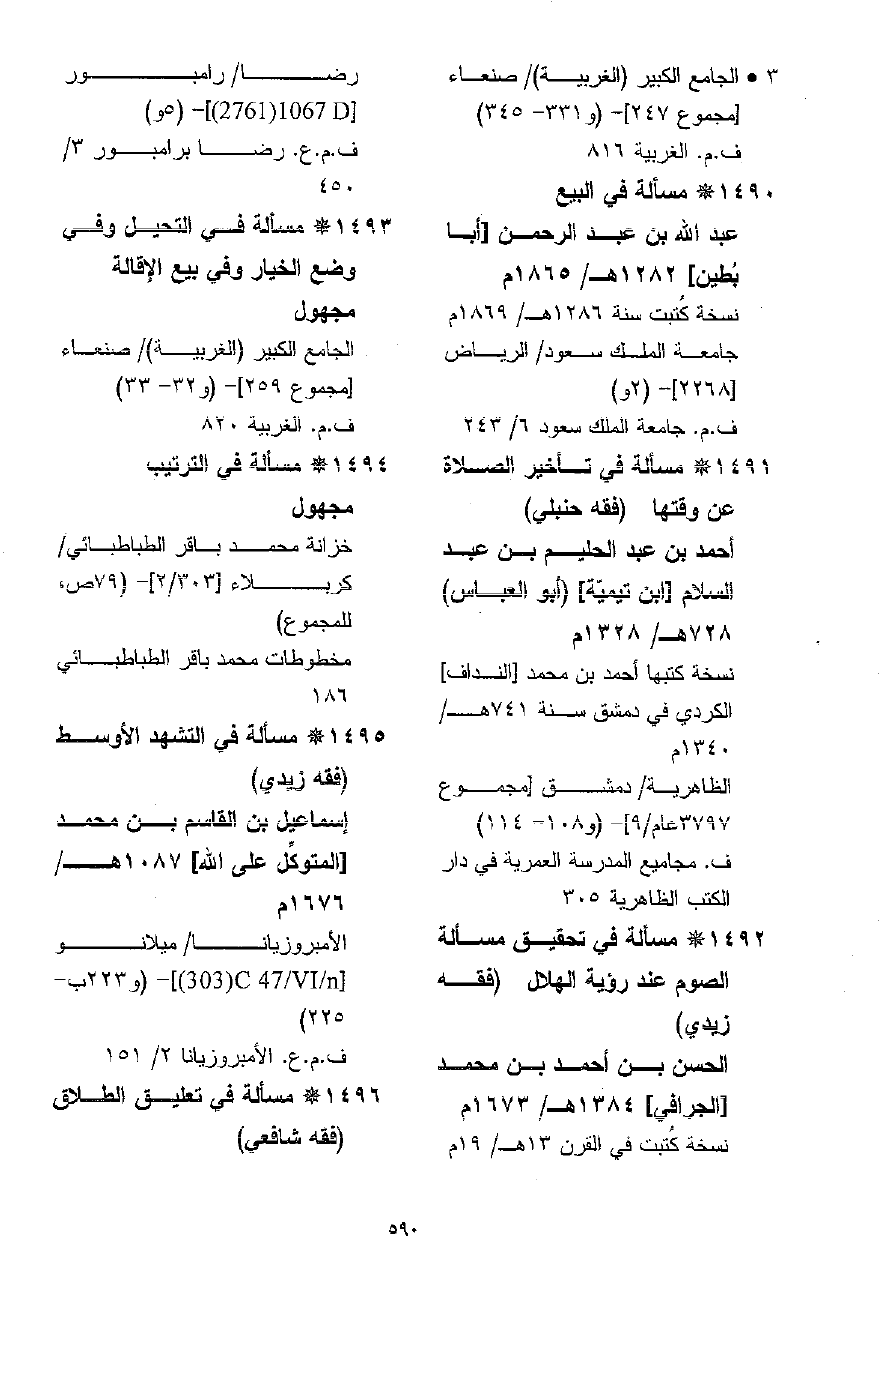 ٣ • الجامع الكبير (الغربية)/ صنعاء
[مجموع ٢٤٧]- (و٣٣١- ٣٤٥)
ف.م. الغربية ٨١٦
١٤٩٠* مسألة في البيع
عبد الله بن عبد الرحمن [أبا
بُطين] ١٢٨٢هـ/ ١٨٦٥م
نسخة كُتبت سنة ١٢٨٦هـ/ ١٨٦٩م
جامعة الملك سعود/ الرياض
[٢٢٦٨]- (٢و)
ف.م. جامعة الملك سعود ٦/ ٢٤٣
١٤٩١* مسألة في تأخير الصلاة
عن وقتها (فقه حنبلي)
أحمد بن عبد الحليم بن عبد
السلام [ابن تيميّة] (أبو العباس)
٧٢٨هـ/ ١٣٢٨م
نسخة كتبها أحمد بن محمد [النداف]
الكردي في دمشق سنة ٧٤١هـ/
١٣٤٠م
الظاهرية/ دمشق [مجموع
٣٧٩٧عام/٩]- (و١٠٨- ١١٤)
ف. مجاميع المدرسة العمرية في دار
الكتب الظاهرية ٣٠٥
١٤٩٢* مسألة في تحقيق مسألة
الصوم عند رؤية الهلال (فقه
زيدي)
الحسن بن أحمد بن محمد
[الجرافي] ١٣٨٤هـ/ ١٦٧٣م
نسخة كُتبت في القرن ١٣هـ/ ١٩م
رضا/ رامبور
[1067 D(2761)]- (٥و)
ف.م.ع. رضا برامبور ٣/
٤٥٠
١٤٩٣* مسألة في التحيل وفي
وضع الخيار وفي بيع الإقالة
مجهول
الجامع الكبير (الغربية)/ صنعاء
[مجموع ٢٥٩]- (و٣٢- ٣٣)
ف.م. الغربية ٨٢٠
١٤٩٤* مسألة في الترتيب
مجهول
خزانة محمد باقر الطباطبائي/
كربلاء [٢/٣٠٣]- (٧٩ص،
للمجموع)
مخطوطات محمد باقر الطباطبائي
١٨٦
١٤٩٥* مسألة في التشهد الأوسط
(فقه زيدي)
إسماعيل بن القاسم بن محمد
[المتوكِّل على الله] ١٠٨٧هـ/
١٦٧٦م
الأمبروزيانا/ ميلانو
[(303)C 47/VI/n]- (و٢٢٣ب-
٢٢٥)
ف.م.ع. الأمبروزيانا ٢/ ١٥١
١٤٩٦* مسألة في تعليق الطلاق
(فقه شافعي)
٥٩٠